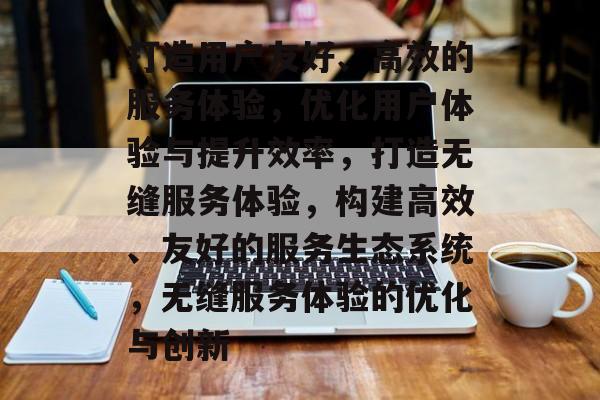 打造用户友好、高效的
服务体验，优化用户体
验与提升效率，打造无
缝服务体验，构建高效
、友好的服务生态系统
，无缝服务体验的优化
与创新